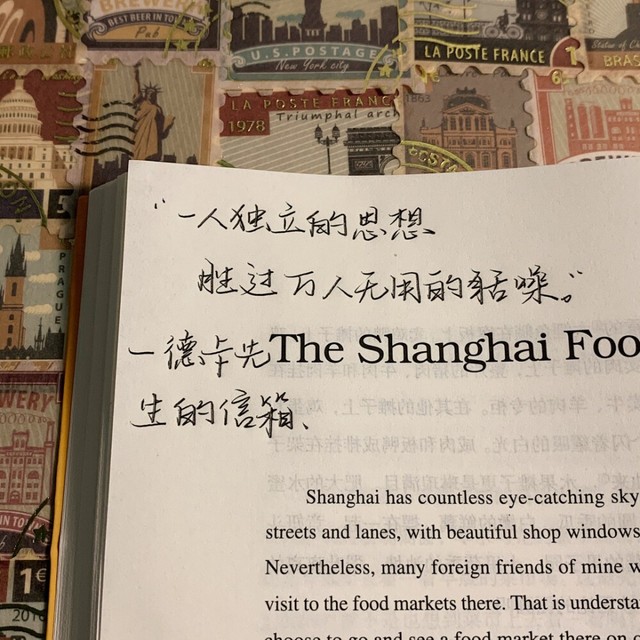 BREWERY
BEST BEER IN TOWN
Pub
U.S.POSTAGE
New York city
LA POSTE FRANCE
1
6
LA POSTE FRANC
Triumphal arch
1978
1863
5
PRAGUE
"一人独立的思想
胜过万人无用的聒噪。"
—德卡先
生的信箱、
The Shanghai Foo
Shanghai has countless eye-catching sky
streets and lanes, with beautiful shop windows
Nevertheless, many foreign friends of mine w
visit to the food markets there. That is understa
choose to go and see a food market there on
EWERY
IN TOWN
1€
2010